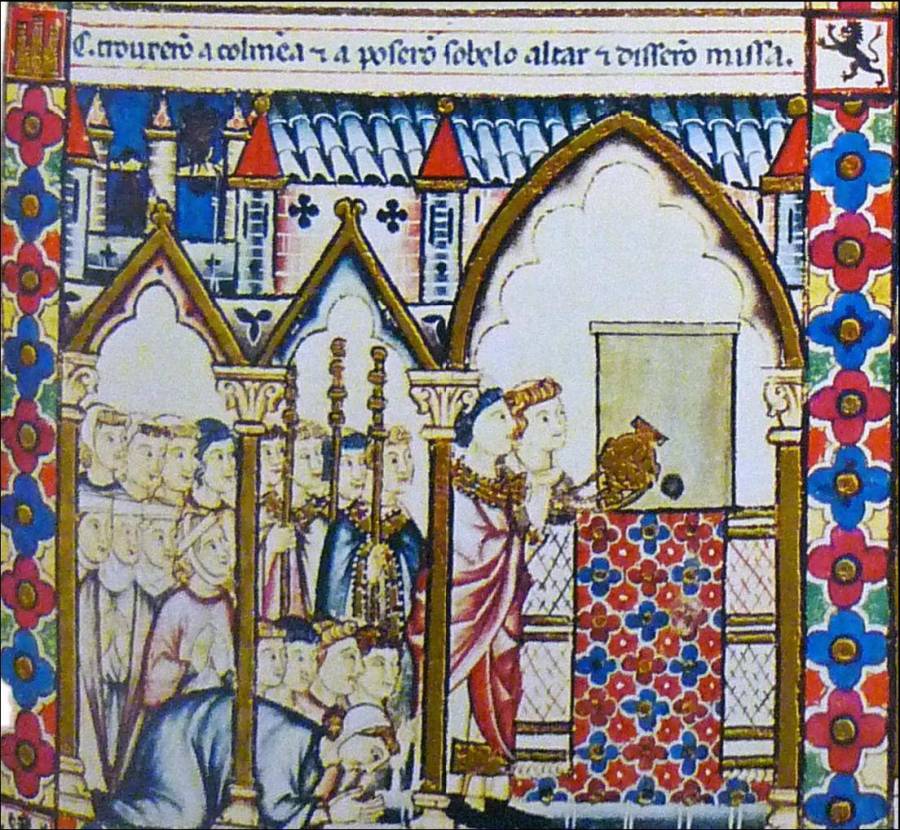 C. trouxerõ a colmẽa ⁊ a poserõ sobelo altar ⁊ disserõ missa.